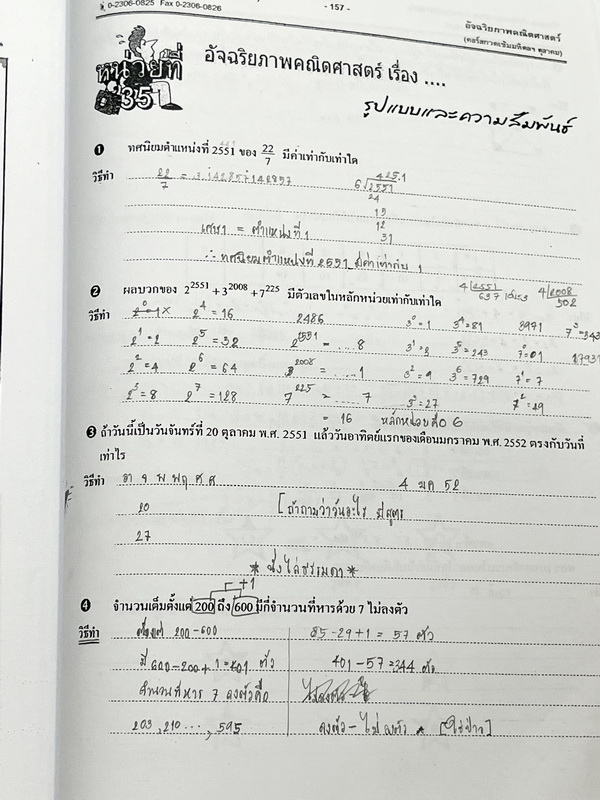 0-2306-0825 Fax 0-2306-0826
- 157 -
อัจฉริยภาพคณิตศาสตร์
หน่วยที่ 35
อัจฉริยภาพคณิตศาสตร์ เรื่อง ....
รูปแบบและความสัมพันธ์
1 ทศนิยมตำแหน่งที่ 2551 ของ 22/7 มีค่าเท่ากับเท่าใด
วิธีทำ 22/7 = 3.142857142857
425.1
6 2551
24
15
12
31
เศษ 1 = ตำแหน่งที่ 1
∴ ทศนิยมตำแหน่งที่ 2551 มีค่าเท่ากับ 1
2 ผลบวกของ 2^2551 + 3^2008 + 7^225 มีตัวเลขในหลักหน่วยเท่ากับเท่าใด
4 2551 637 เศษ3 4 2008 502
วิธีทำ 2^0=1 × 2^4 = 16 2486 3^0=1 3^4=81 3971 7^3=343
2^1=2 2^5 = 32 2^2551 = .... 8 3^1=3 3^5=243 7^0=1
2^2=4 2^6 = 64 3^2008 = .... 1 3^2=9 3^6=729 7^1=7
2^3=8 2^7 = 128 7^225 = ... 7 3^3=27 7^2=49
= 16 หลักหน่วยคือ 6
3 ถ้าวันนี้เป็นวันจันทร์ที่ 20 ตุลาคม พ.ศ. 2551 แล้ววันอาทิตย์แรกของเดือนมกราคม พ.ศ. 2552 ตรงกับวันที่
เท่าไร
วิธีทำ อา จ อ พ พฤ ศ ส 4 มค 52
20 [ถ้าถามว่าวันอะไร มีสูตร
27
* นั่งไล่ธรรมดา *
+1
4 จำนวนเต็มตั้งแต่ 200 ถึง 600 มีกี่จำนวนที่หารด้วย 7 ไม่ลงตัว
วิธีทำ ตั้งแต่ 200-600 85-29+1 = 57 ตัว
มี 600-200+1=401 ตัว 401-57=344 ตัว
จำนวนที่หาร 7 ลงตัวคือ
203,210...,595 ลงตัว - ไม่ลงตัว